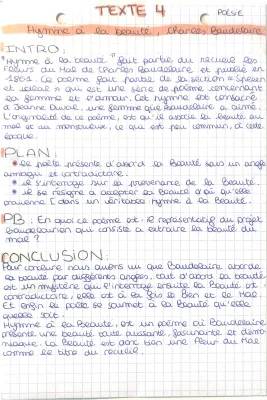 TEXTE 4
POESIE
Hymne à la beauté, Charles Baudelaire
INTRO:
"Hymne à la beauté" fait partie du recueil les
Fleurs du Mal de Charles Baudelaire et publié en
1861. Ce poème fait partie de la section "Spleen
et idéal" qui est une série de poème concernant
la femme et l'amour. Cet hymne est consacré
à Jeanne Duval, une femme que Baudelaire a aimé.
L'originalité de ce poème, est qu'il associe la beauté au
mal et au monstrueux, ce qui est peu commun, à cette
époque.
PLAN:
le poète présente d'abord la Beauté sous un angle
ambigu et contradictoire.
il s'interroge sur la provenance de la Beauté.
il se résigne à accepter la Beauté d'où qu'elle
provienne dans un véritable hymne à la Beauté.
PB: En quoi ce poème est-il représentatif du projet
baudelairien qui consiste à extraire la beauté du
mal ?
CONCLUSION:
Pour conclure nous avons vu que Baudelaire aborde
la beauté par différents angles, tout d'abord la beauté
est un mystère qui l'interroge ensuite la Beauté est
contradictoire, elle est à la fois le Bien et le Mal.
Et enfin le poète se soumet à la Beauté qu'elle
quelle soit.
Hymne à la Beauté, est un poème où Baudelaire
présente une beauté toute puissante, fascinante et démo-
niaque. La Beauté est donc bien une fleur du Mal
comme le titre du recueil.